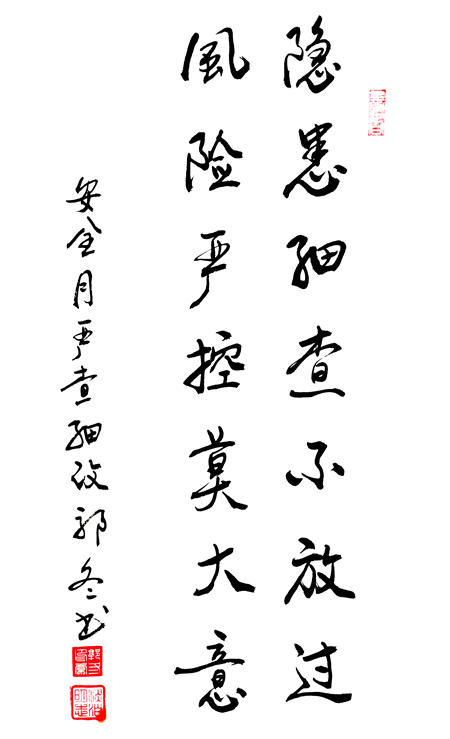 隐患细查不放过
風险严控莫大意
安全月严查细改郭冬书